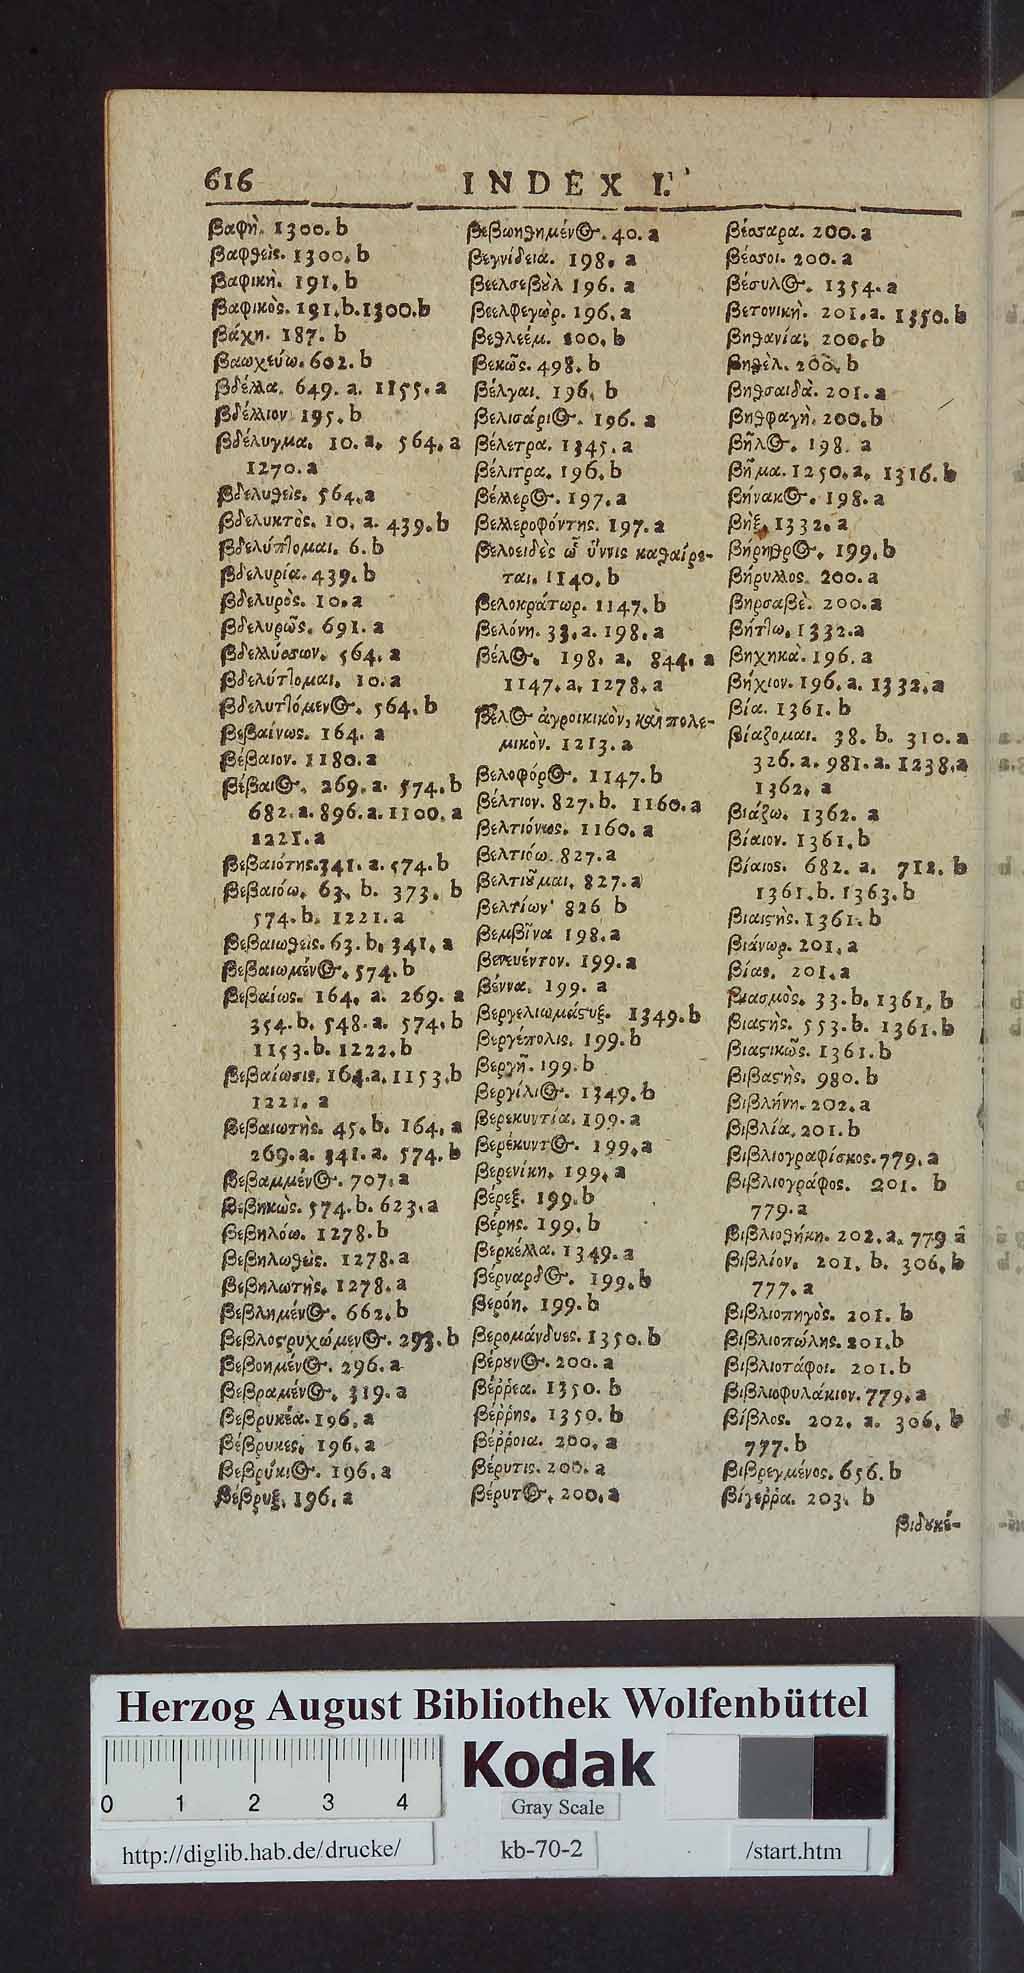 616 INDEX I.
βαφὴ. 1300. b
βαφθεὶς. 1300. b
βαφικὴ. 191. b
βαφικὸς. 191. b. 1300. b
βάχη. 187. b
βαωχεύω. 602. b
βδέλλα. 649. a. 1155. a
βδέλλιον 195. b
βδέλυγμα. 10. a. 564. a
1270. a
βδελυθεὶς. 564. a
βδελυκτὸς. 10. a. 439. b
βδελύπτομαι. 6. b
βδελυρία. 439. b
βδελυρὸς. 10. a
βδελυρῶς. 691. a
βδελλύσσων. 564. a
βδελύττομαι. 10. a
βδελυττόμενος. 564. b
βεβαίνως. 164. a
βέβαιον. 1180. a
βέβαιος. 269. a. 574. b
682. a. 896. a. 1100. a
1221. a
βεβαιότης. 341. a. 574. b
βεβαιόω. 63. b. 373. b
574. b. 1221. a
βεβαιωθεὶς. 63. b. 341. a
βεβαιωμένος. 574. b
βεβαίως. 164. a. 269. a
354. b. 548. a. 574. b
1153. b. 1222. b
βεβαίωσις. 164. a. 1153. b
1221. a
βεβαιωτὴς. 45. b. 164. a
269. a. 341. a. 574. b
βεβαμμένος. 707. a
βεβηκὼς. 574. b. 623. a
βεβηλόω. 1278. b
βεβηλωθεὶς. 1278. a
βεβηλωτὴς. 1278. a
βεβλημένος. 662. b
βεβλοςρυχώμενος. 293. b
βεβοημένος. 296. a
βεβραμένος. 319. a
βεβρυκέα. 196. a
βέβρυκες. 196. a
βεβρύκιος. 196. a
βέβρυξ. 196. a
βεβωηθημένος. 40. a
βεγνίδεια. 198. a
βεελσεβοὺλ 196. a
βεελφεγὼρ. 196. a
βεθλεέμ. 200. b
βεκῶς. 498. b
βέλγαι. 196. b
βελισάριος. 196. a
βέλετρα. 1345. a
βέλιτρα. 196. b
βέλλερος. 197. a
βελλεροφόντης. 197. a
βελοειδὲς ὦ ὕννις καθαίρε-
ται. 1140. b
βελοκράτωρ. 1147. b
βελόνη. 33. a. 198. a
βέλος. 198. a. 844. a
1147. a. 1278. a
βέλος ἀγροικικὸν, καὶ πολε-
μικὸν. 1213. a
βελοφόρος. 1147. b
βέλτιον. 827. b. 1160. a
βελτιόνως. 1160. a
βελτιόω. 827. a
βελτιοῦμαι. 827. a
βελτίων 826 b
βεμβῖνα 198. a
βενευέντον. 199. a
βέννα. 199. a
βεργελιωμάςυξ. 1349. b
βεργέπολις. 199. b
βεργῆ. 199. b
βεργίλιος. 1349. b
βερεκυντία. 199. a
βερέκυντος. 199. a
βερενίκη. 199. a
βέρεξ. 199. b
βέρης. 199. b
βερκέλλα. 1349. a
βέρναρδος. 199. b
βερόη. 199. b
βερομάνδυες. 1350. b
βέρουνος. 200. a
βέῤῥεα. 1350. b
βέῤῥης. 1350. b
βέῤῥοια. 200. a
βέρυτις. 200. a
βέρυτος. 200. a
βέσσαρα. 200. a
βέσσοι. 200. a
βέσυλος. 1354. a
βετονικὴ. 201. a. 1350. b
βηθανία. 200. b
βηθὲλ. 200. b
βηθσαιδὰ. 201. a
βηθφαγὴ. 200. b
βῆλος. 198. a
βῆμα. 1250. a. 1316. b
βήνακος. 198. a
βὴξ. 1332. a
βήρηθρος. 199. b
βήρυλλος. 200. a
βηρσαβὲ. 200. a
βήττω. 1332. a
βηχηκὰ. 196. a
βήχιον. 196. a. 1332. a
βία. 1361. b
βιάζομαι. 38. b. 310. a
326. a. 981. a. 1238. a
1362. a
βιάζω. 1362. a
βίαιον. 1361. b
βίαιος. 682. a. 712. b
1361. b. 1363. b
βιαιςὴς. 1361. b
βιάνωρ. 201. a
βίας. 201. a
βιασμὸς. 33. b. 1361. b
βιαςὴς. 553. b. 1361. b
βιαςικῶς. 1361. b
βιβαςὴς. 980. b
βιβλήνη. 202. a
βιβλία. 201. b
βιβλιογραφίσκος. 779. a
βιβλιογράφος. 201. b
779. a
βιβλιοθήκη. 202. a. 779 a
βιβλίον. 201. b. 306. b
777. a
βιβλιοπηγὸς. 201. b
βιβλιοπώλης. 201. b
βιβλιοτάφοι. 201. b
βιβλιοφυλάκιον. 779. a
βίβλος. 202. a. 306. b
777. b
βιβρεγμένος. 656. b
βίγερῥα. 203. b
βιδουκέ-
Herzog August Bibliothek Wolfenbüttel
0 1 2 3 4
Kodak
Gray Scale
http://diglib.hab.de/drucke/ kb-70-2 /start.htm